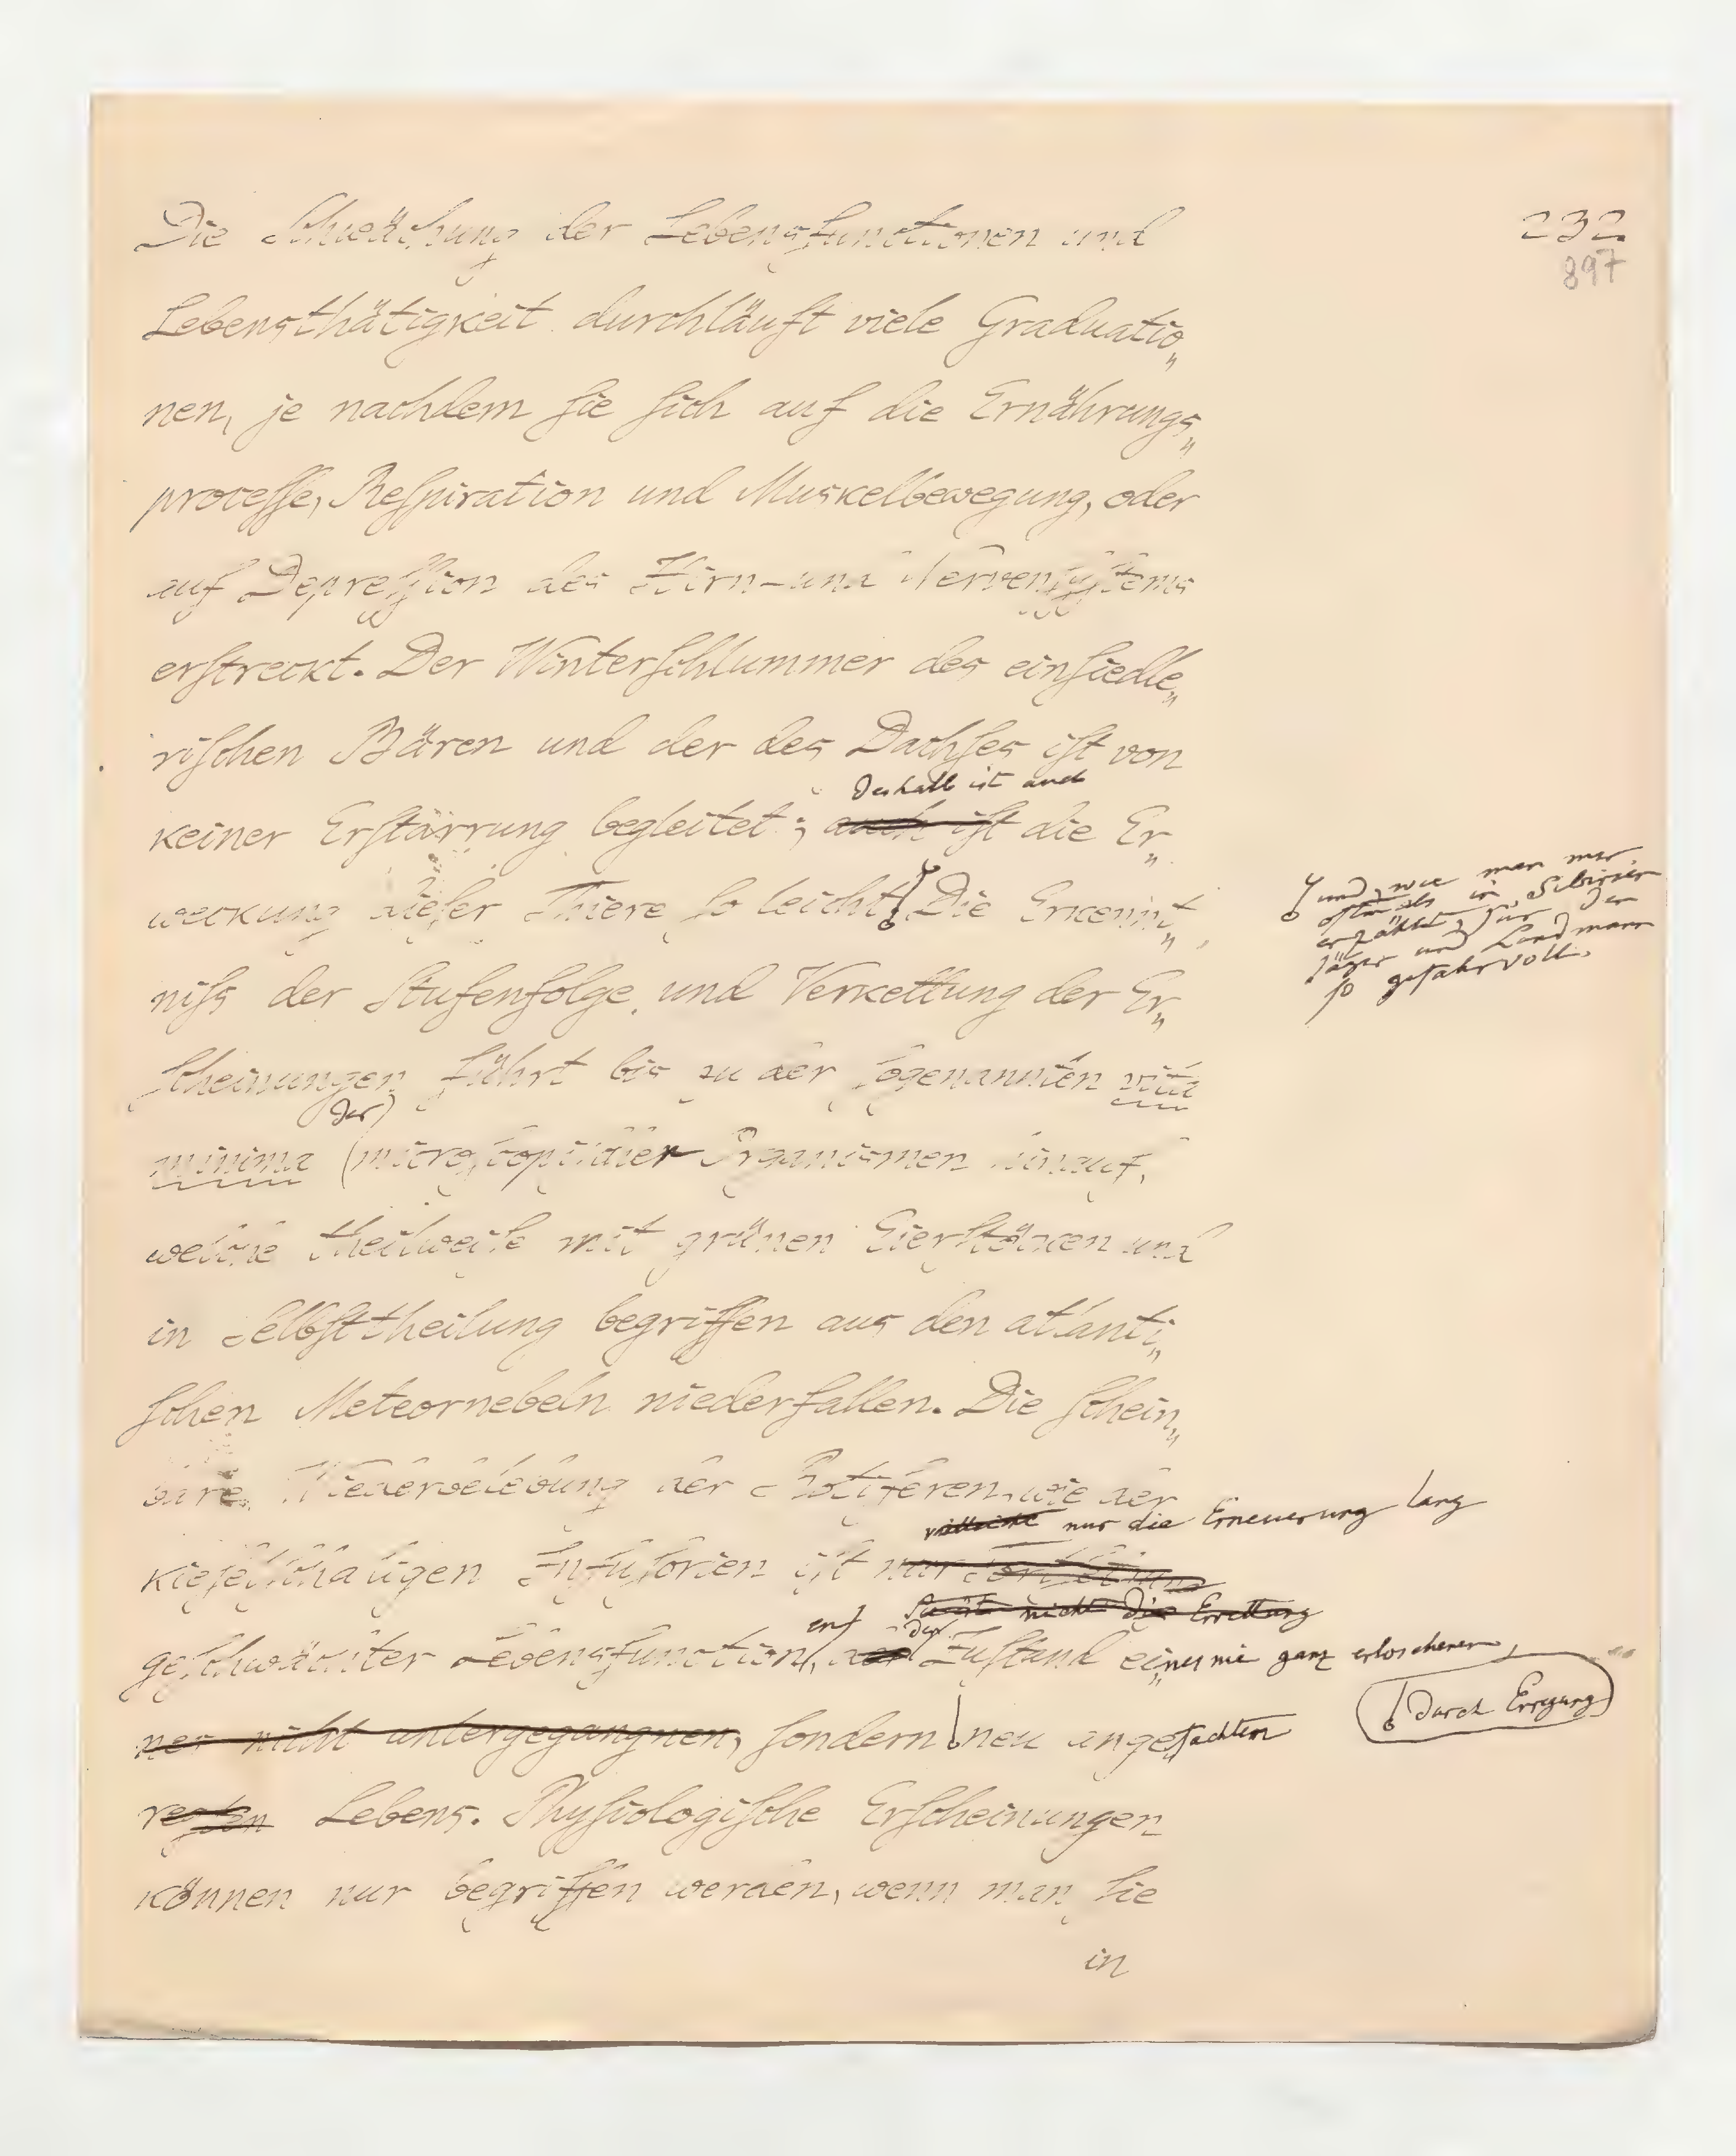 232
897
Die Schwächung der Lebensfunctionen und
Lebensthätigkeit durchläuft viele Graduatio„
nen, je nachdem sie sich auf die Ernährungs„
processe, Respiration und Muskelbewegung, oder
auf Depression des Hirn- und Nervensystems
erstreckt. Der Winterschlummer des einsiedle„
rischen Bären und der des Dachses ist von
deshalb ist auch
keiner Erstarrung begleitet; auch ist die Er„
weckung dieser Thiere so leicht. Die Erkennt„
und, wie man mir
oftmals in Sibirien
erzählte, für den
Jäger und Landmann
so gefahrvoll.
niss der Stufenfolge und Verkettung der Er„
scheinungen führt bis zu der sogenannten vita
der)
minima (microscopischer Organismen hinauf,
welche theilweise mit grünen Eierstöcken und
in Selbsttheilung begriffen aus den atlanti„
schen Meteornebeln niederfallen. Die schein„
bare Wiederbelebung der Rotiferen, wie der
vielleicht nur die Erneuerung lang
kieselschaligen Infusorien ist nur
nicht die Errettung
geschwächter Lebensfunction, der Zustand eines nie ganz erloschenen,
durch Erregung
ner nicht untergegangnen, sondern neu angefachten
Lebens. Physiologische Erscheinungen
können nur begriffen werden, wenn man sie
in